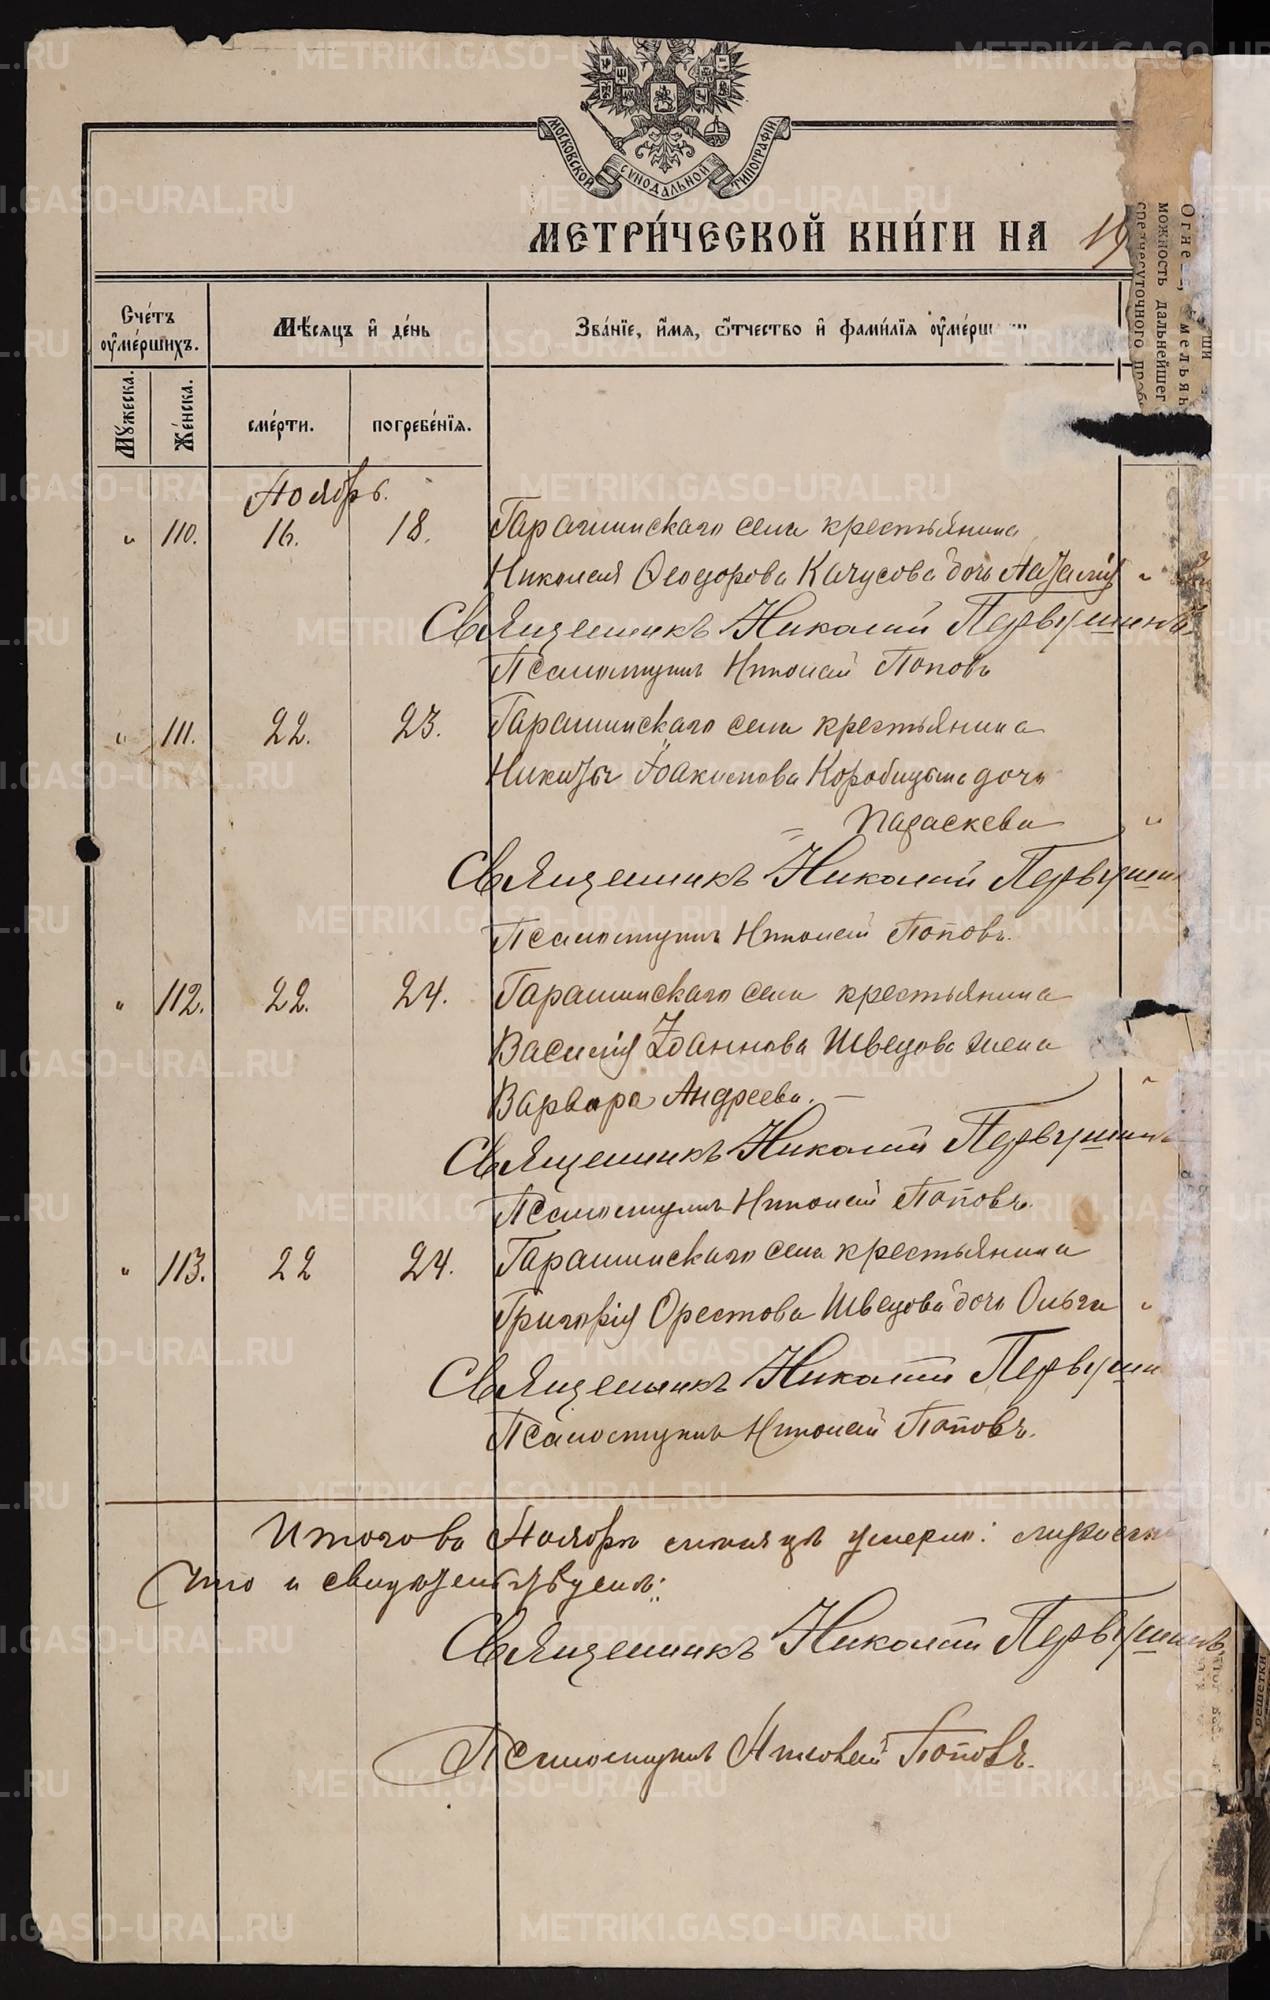 МОСКОВСКОЙ СѴНОДАЛЬНОЙ ТИПОГРАФІИ
МЕТРИ́ЧЕСКОЙ КНИ́ГИ НА 19
Сче́тъ оу҆ме́ршихъ.
Мѣ́сяцъ и҆ де́нь
Зва́нїе, и҆́мѧ, ѻ҆́тчество и҆ фами́лїѧ оу҆ме́рш
Мꙋ́жеска.
Же́нска.
сме́рти.
погребе́нїѧ.
Ноябрь.
" 110. 16. 18. Гарашинскаго села крестьянина
Николая Ѳеодорова Качусова дочь Наталія "
Священникъ Николай Первушинъ
Псаломщикъ Николай Поповъ
" 111. 22. 23. Гарашинскаго села крестьянина
Никиты Іоакимова Коробицына дочь
Параскева "
Священникъ Николай Первушин
Псаломщикъ Николай Поповъ.
" 112. 22. 24. Гарашинскаго села крестьянина
Василія Іоаннова Швецова жена
Варвара Андреева. "
Священникъ Николай Первушинъ
Псаломщикъ Николай Поповъ.
" 113. 22 24. Гарашинскаго села крестьянина
Григорія Орестова Швецова дочь Ольга "
Священникъ Николай Первушин
Псаломщикъ Николай Поповъ.
Итого въ Ноябрѣ мѣсяцѣ умерло:
Что и свидѣтельствуемъ:
Священникъ Николай Первушинъ
Псаломщикъ Николай Поповъ.